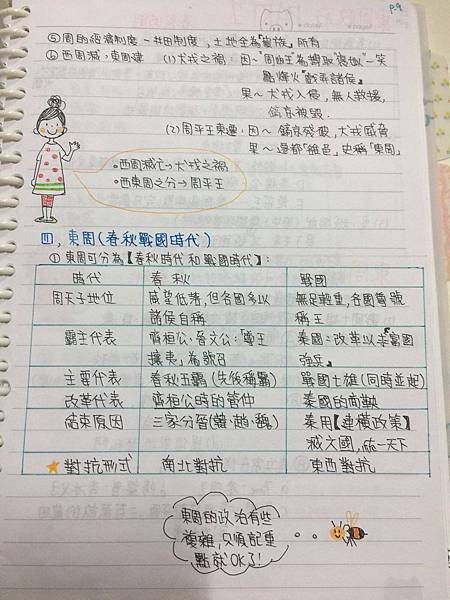 P.9
⑤ 周的經濟制度－井田制度，土地全為「貴族」所有
⑥ 西周滅，東周建 (1)犬戎之禍：因～"周幽王"為搏取"褒姒"一笑
點烽火"戲弄諸侯。
果～犬戎入侵，無人救援，
鎬京被毀.
(2)周平王東遷：因～鎬京殘破，犬戎威脅
果～遷都「雒邑」，史稱「東周」
•西周滅亡→犬戎之禍
•西東周之分→周平王
四、東周(春秋戰國時代)
①東周可分為【春秋時代和戰國時代】：
時代 春秋 戰國
周天子地位 威望低落，但各國多以 無足輕重，各國竟號
諸侯自稱 稱王
霸主代表 齊桓公、晉文公：「尊王 秦國：改革以求富國
攘夷」為號召 強兵。
主要代表 春秋五霸(先後稱霸) 戰國七雄(同時並起)
改革代表 齊桓公時的管仲 秦國的商鞅
結束原因 三家分晉(韓、趙、魏) 秦用【連橫政策】
滅六國，統一天下
★對抗形式 南北對抗 東西對抗
東周的政治有些
複雜，只須記重
點就OK了！